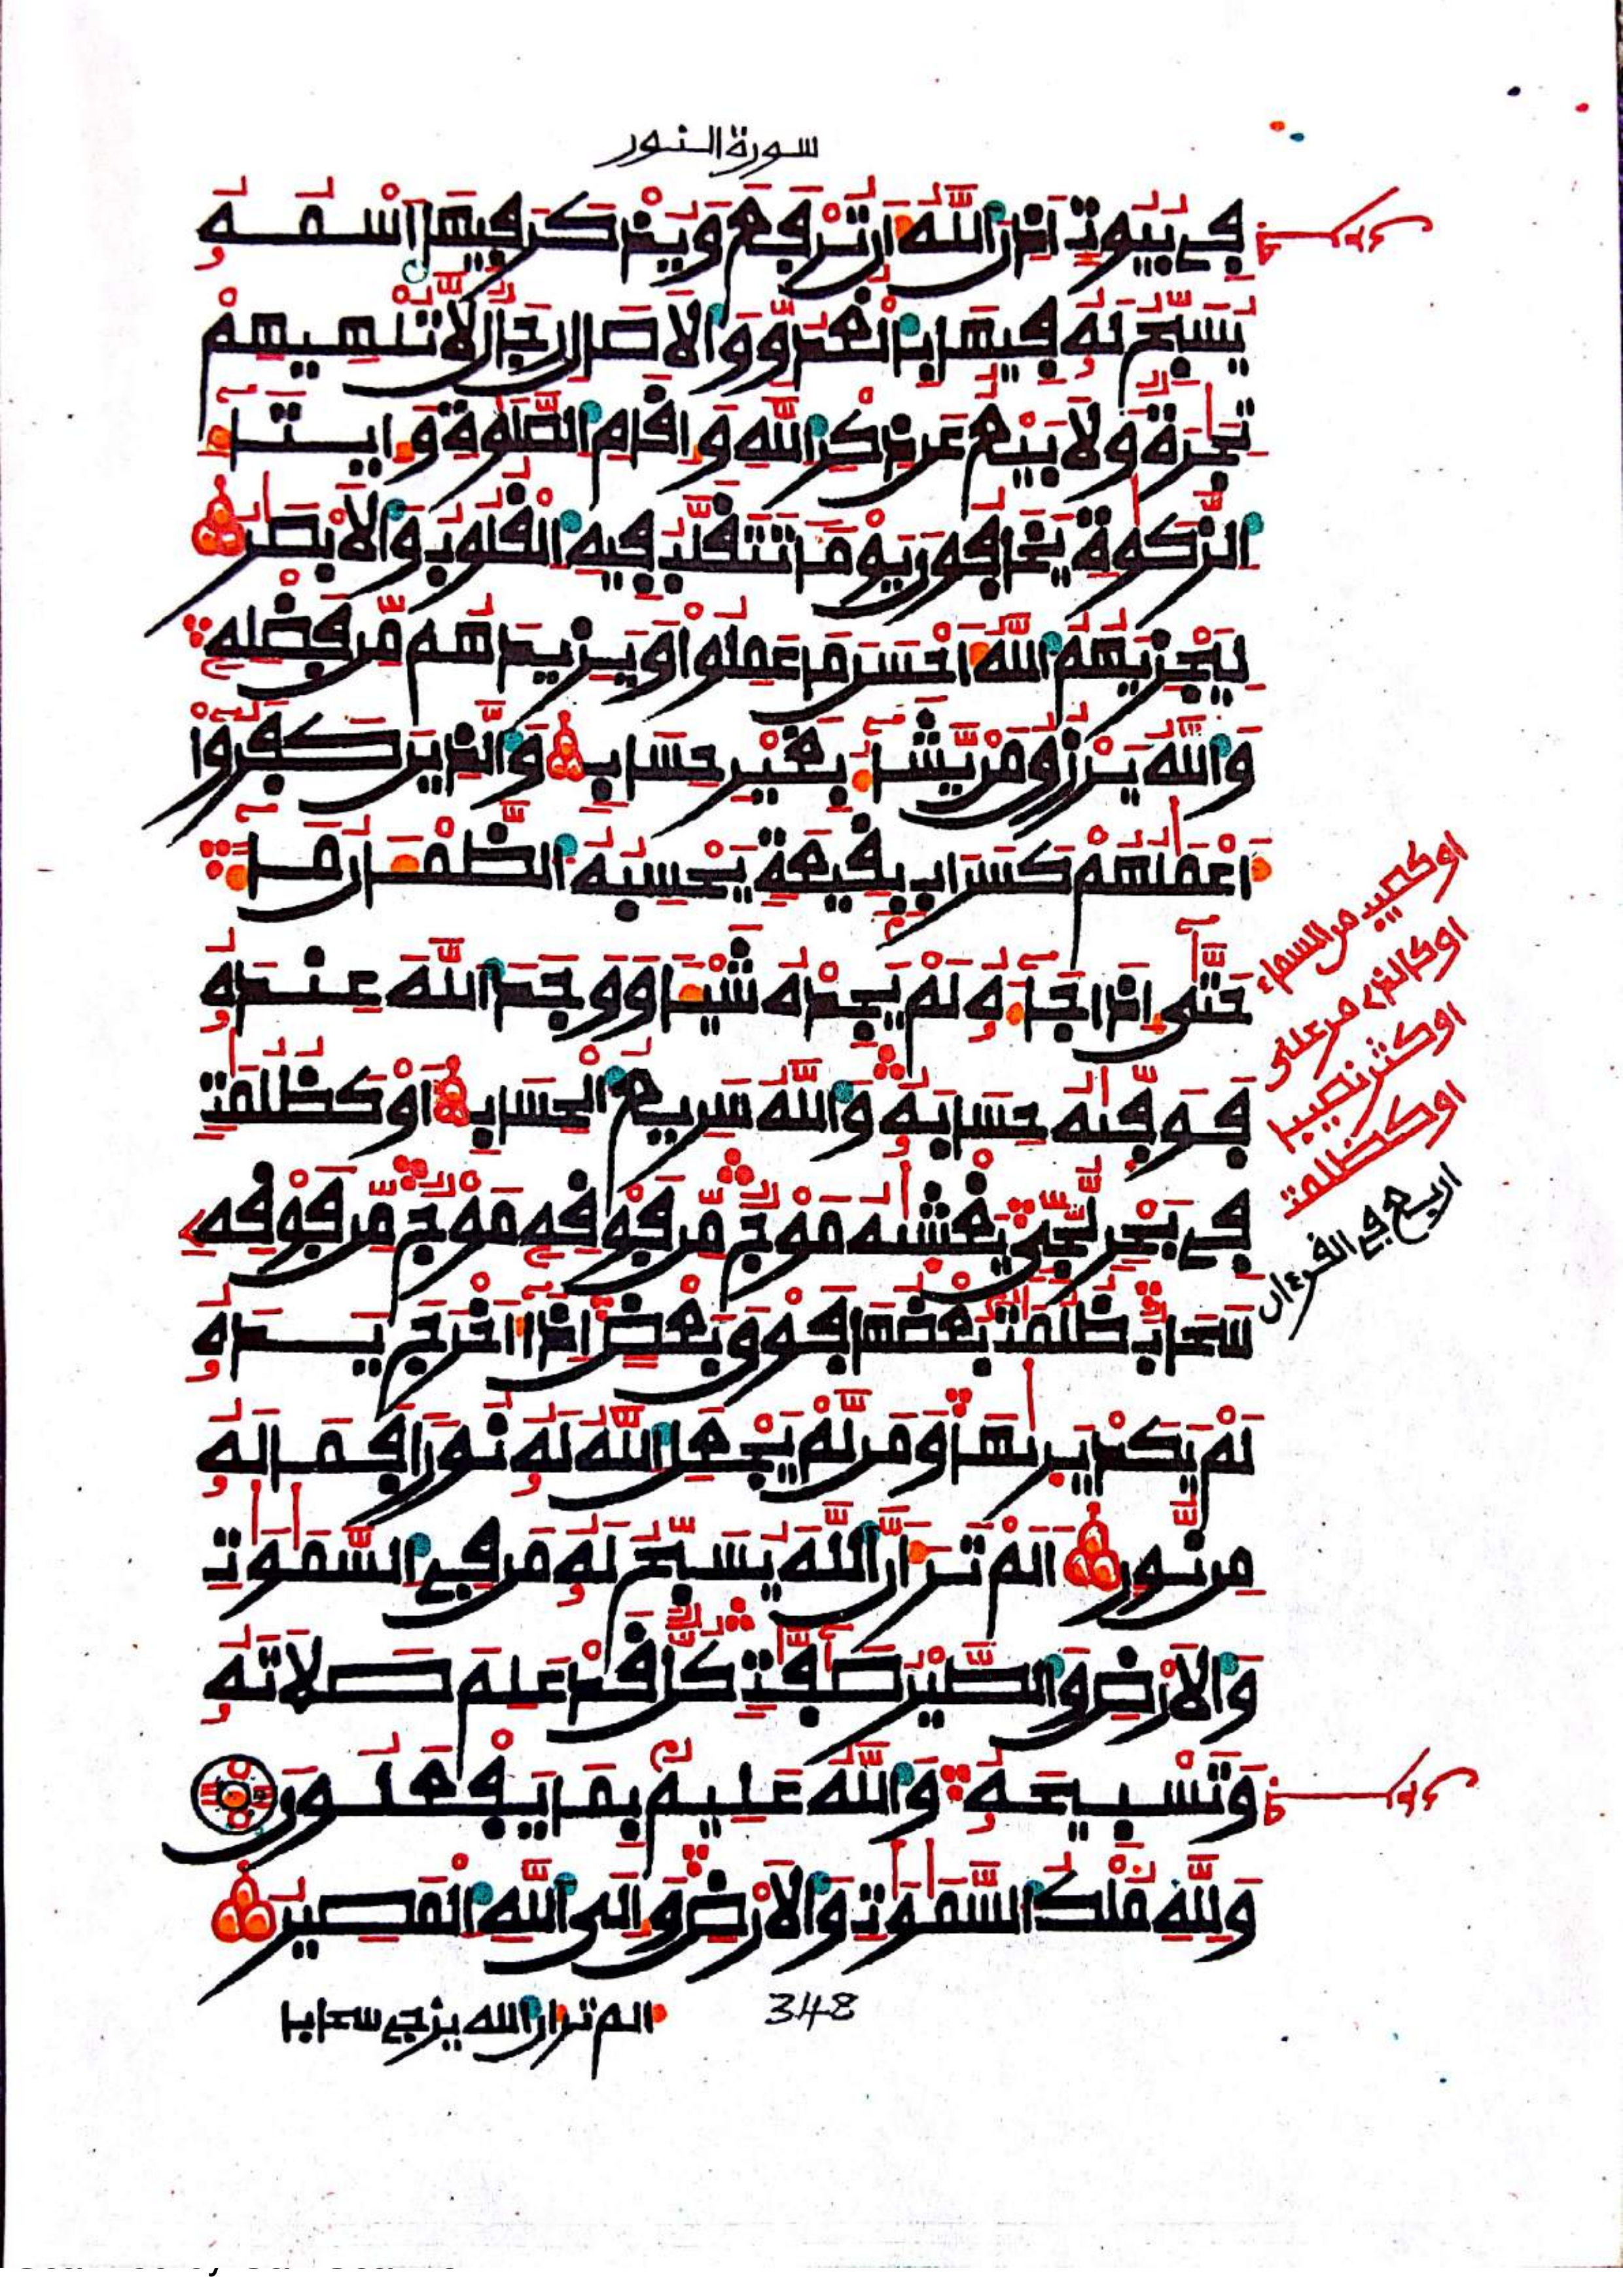 سورة النور
فِي بُيُوتٍ اَذِنَ اَللَّهُ أَن تُرْفَعَ وَيُذْكَرَ فِيهَا اَسْمُهُ
يُسَبِّحُ لَهُ فِيهَا بِالْغُدُوِّ وَالَاصَالِ رِجَالٌ لَّا تُلْهِيهِمْ
تِجَٰرَةٌ وَلَا بَيْعٌ عَن ذِكْرِ اِللَّهِ وَإِقَامِ اِلصَّلَوٰةِ وَإِيتَآءِ
اِلزَّكَوٰةِ يَخَافُونَ يَوْمًا تَتَقَلَّبُ فِيهِ اِلْقُلُوبُ وَالَابْصَٰرُ
لِيَجْزِيَهُمُ اُللَّهُ أَحْسَنَ مَا عَمِلُوا وَيَزِيدَهُم مِّن فَضْلِهِ
وَاللَّهُ يَرْزُقُ مَنْ يَّشَآءُ بِغَيْرِ حِسَابٍ وَالذِينَ كَفَرُوٓاْ
أَعْمَٰلُهُمْ كَسَرَابٍ بِقِيعَةٍ يَحْسِبُهُ اُلظَّمْـَٔانُ مَآءً
حَتَّىٰٓ إِذَا جَآءَهُ لَمْ يَجِدْهُ شَيْـًٔا وَوَجَدَ اَللَّهَ عِندَهُ
فَوَفَّىٰهُ حِسَابَهُ وَاللَّهُ سَرِيعُ اُلْحِسَابِ أَوْ كَظُلُمَٰتٍ
فِي بَحْرٍ لُّجِّيٍّ يَغْشَىٰهُ مَوْجٌ مِّن فَوْقِهِ مَوْجٌ مِّن فَوْقِهِ
سَحَابٌ ظُلُمَٰتٌ بَعْضُهَا فَوْقَ بَعْضٍ اِذَآ أَخْرَجَ يَدَهُ
لَمْ يَكَدْ يَرَىٰهَا وَمَن لَّمْ يَجْعَلِ اِللَّهُ لَهُ نُورًا فَمَا لَهُ
مِن نُّورٍ اَلَمْ تَرَ أَنَّ اَللَّهَ يُسَبِّحُ لَهُ مَن فِي اِلسَّمَٰوَٰتِ
وَالَارْضِ وَالطَّيْرُ صَٰٓفَّٰتٍ كُلٌّ قَدْ عَلِمَ صَلَاتَهُ
وَتَسْبِيحَهُ وَاللَّهُ عَلِيمٌ بِمَا يَفْعَلُونَ
وَلِلَّهِ مُلْكُ اُلسَّمَٰوَٰتِ وَالَارْضِ وَإِلَى اَللَّهِ اِلْمَصِيرُ
اوكصيب من السماء
اوكالذي مر على
اوكثر نصيبا
اوكظلمت
اربع في القرءان
348
الم تر ان الله يزجي سحابا